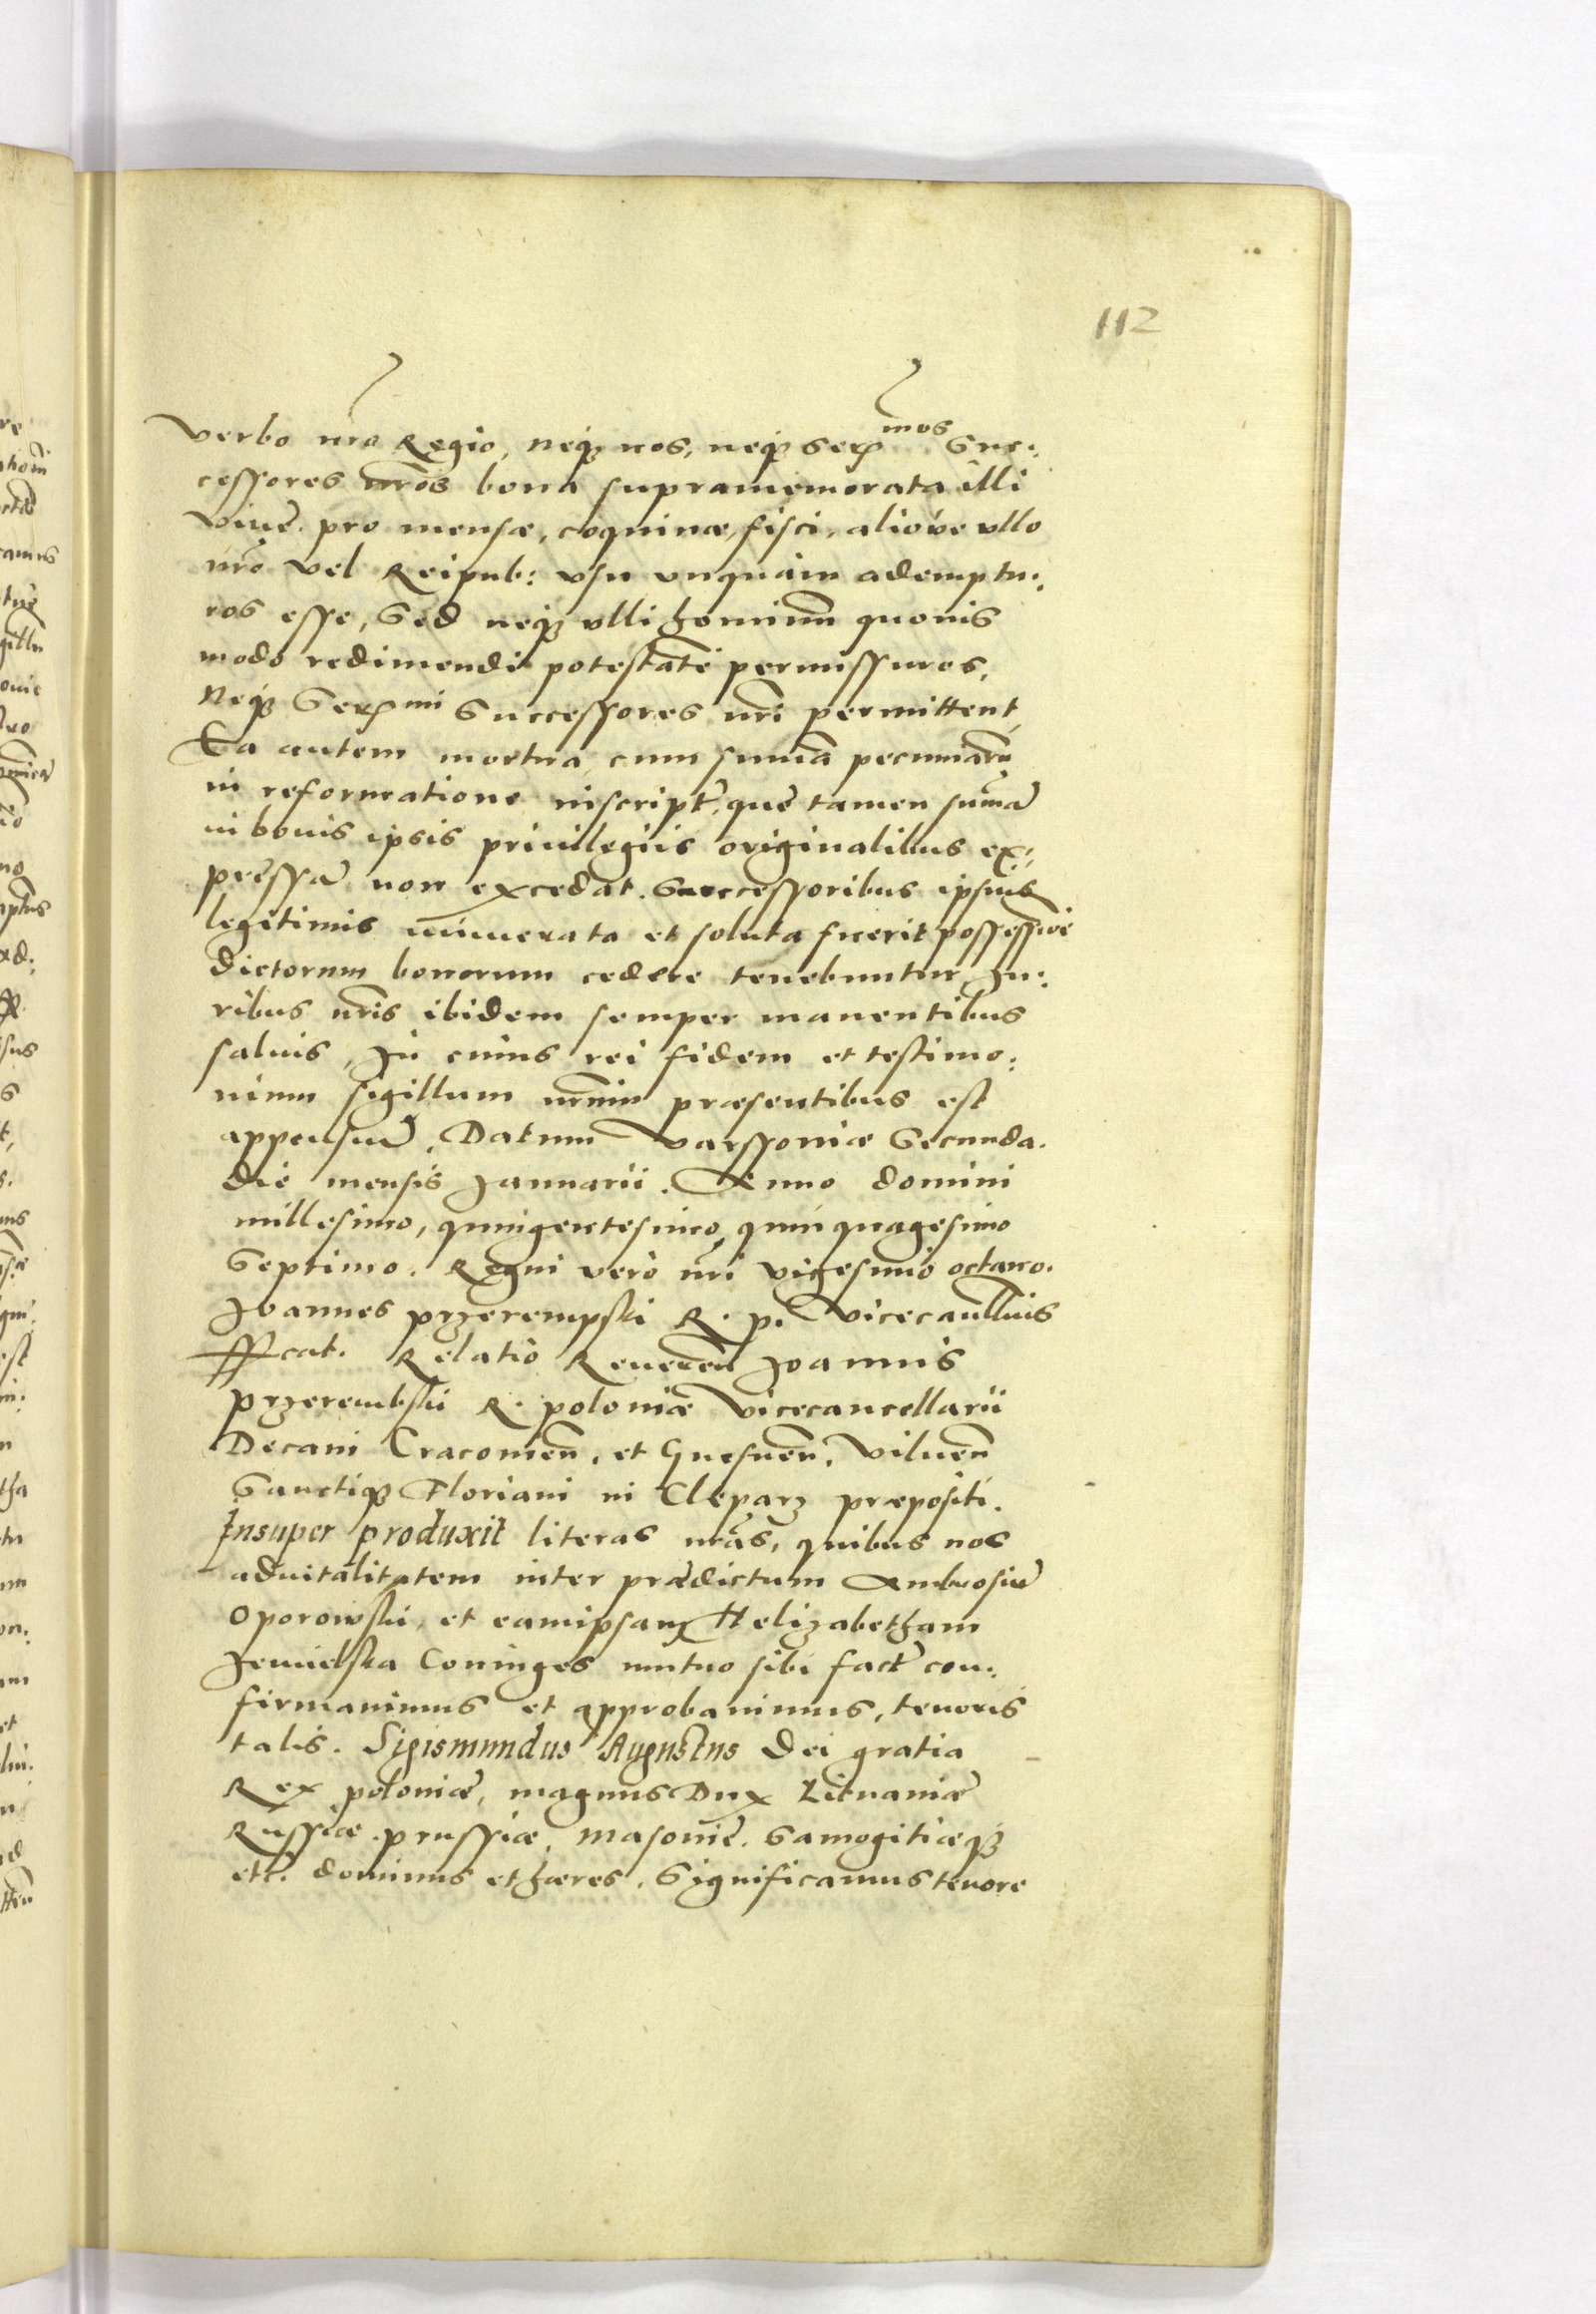 112
verbo nr̃o Regio, neq3 nos, neq3 Ser^mos Suc:
cessores nr̃os bona supramemorata illi
viuẽ. pro mensæ, coquinæ, fisci, alioùe vllo
nr̃o vel Reipub: vsu vnquam ademptu:
ros esse, Sed neq3 vlli hominũ quouis
modo redimendi potestatẽ permissuros,
Neq3 Ser^mi Successores nr̃i permittent
Ea autem mortua cum sum̃a pecuniarũ
in reformatione inscript̃, quẽ tamen sum̃ã
in bonis ipsis priuilegiis originalibus ex:
pressã non excedat. Successoribus ipsius
legitimis numerata et soluta fuerit possessiõe
dictorum bonorum cedere tenebuntur, Iu:
ribus nr̃is ibidem semper manentibus
saluis, In cuius rei fidem et testimo:
nium sigillum nr̃um præsentibus est
appensũ. Datum Varssouiæ Secunda.
die mensis Januarii. Anno domini
millesimo, quingentesimo, quinquagesimo
Septimo. Regni verò nr̃i vigesimo octauo.
Joannes przerempski R. p. Vicecancellrius
sscat. Relatio Reueren̄ Joannis
przerembskii R. poloniæ Vicecancellarii
Decani Cracouien̄. et Gnesnen̄. Vilnen̄
Sanctiq3 Floriani in Cleparz præpositi.
Insuper produxit literas nr̃as, quibus nos
aduitalitatem inter prædictum Ambrosiũ
Oporowski, et eamipsam Helizabetham
Jemielska Coniuges mutuo sibi fact̃ con:
firmauimus et approbauimus, tenoris
talis. Sigismundus Augustus Dei gratia
Rex poloniæ, magnus Dux Lituaniæ
Russiæ. prussiæ, masouiẽ. Samogitiæq3
etc. dominus et hæres. Significamus tenore